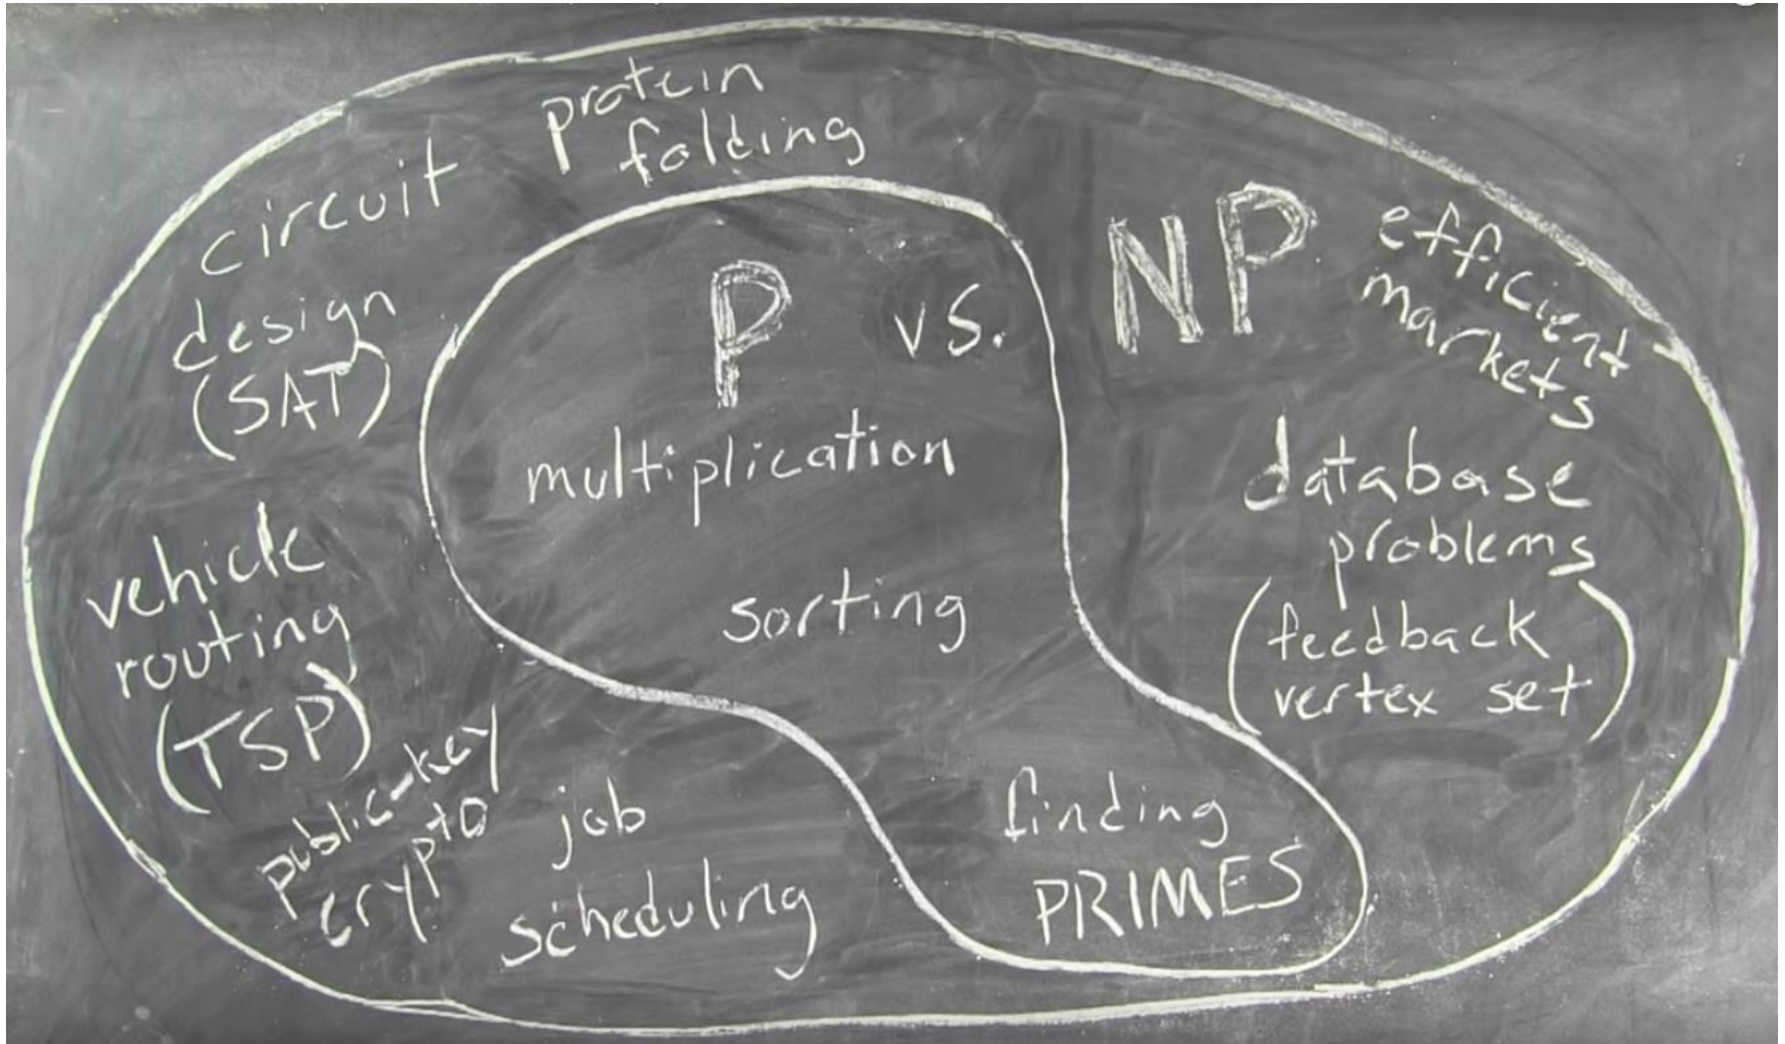 protein
folding
circuit
design
(SAT)
P vs. NP
efficient
markets
multiplication
database
problems
(feedback
vertex set)
sorting
vehicle
routing
(TSP)
public-key
crypto
job
scheduling
finding
PRIMES